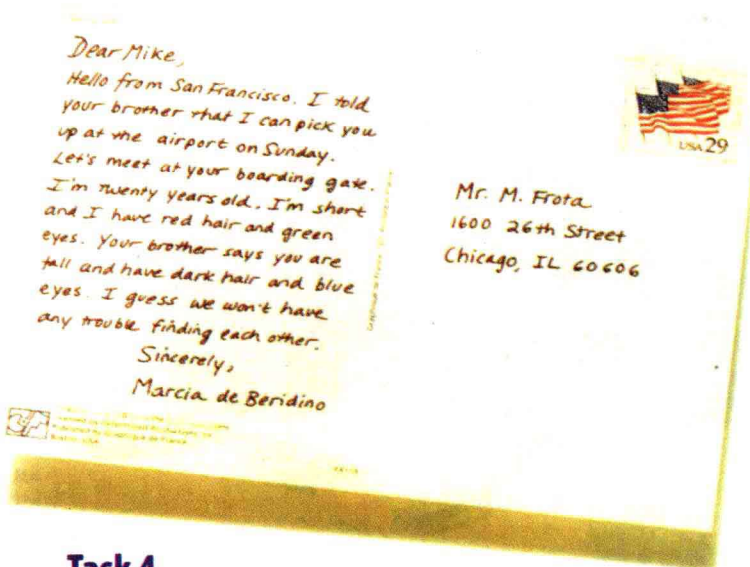 Dear Mike,
Hello from San Francisco. I told
your brother that I can pick you
up at the airport on Sunday.
Let's meet at your boarding gate.
I'm twenty years old. I'm short
and I have red hair and green
eyes. Your brother says you are
tall and have dark hair and blue
eyes. I guess we won't have
any trouble finding each other.
Sincerely,
Marcia de Beridino
USA 29
Mr. M. Frota
1600 26th Street
Chicago, IL 60606
Task 4